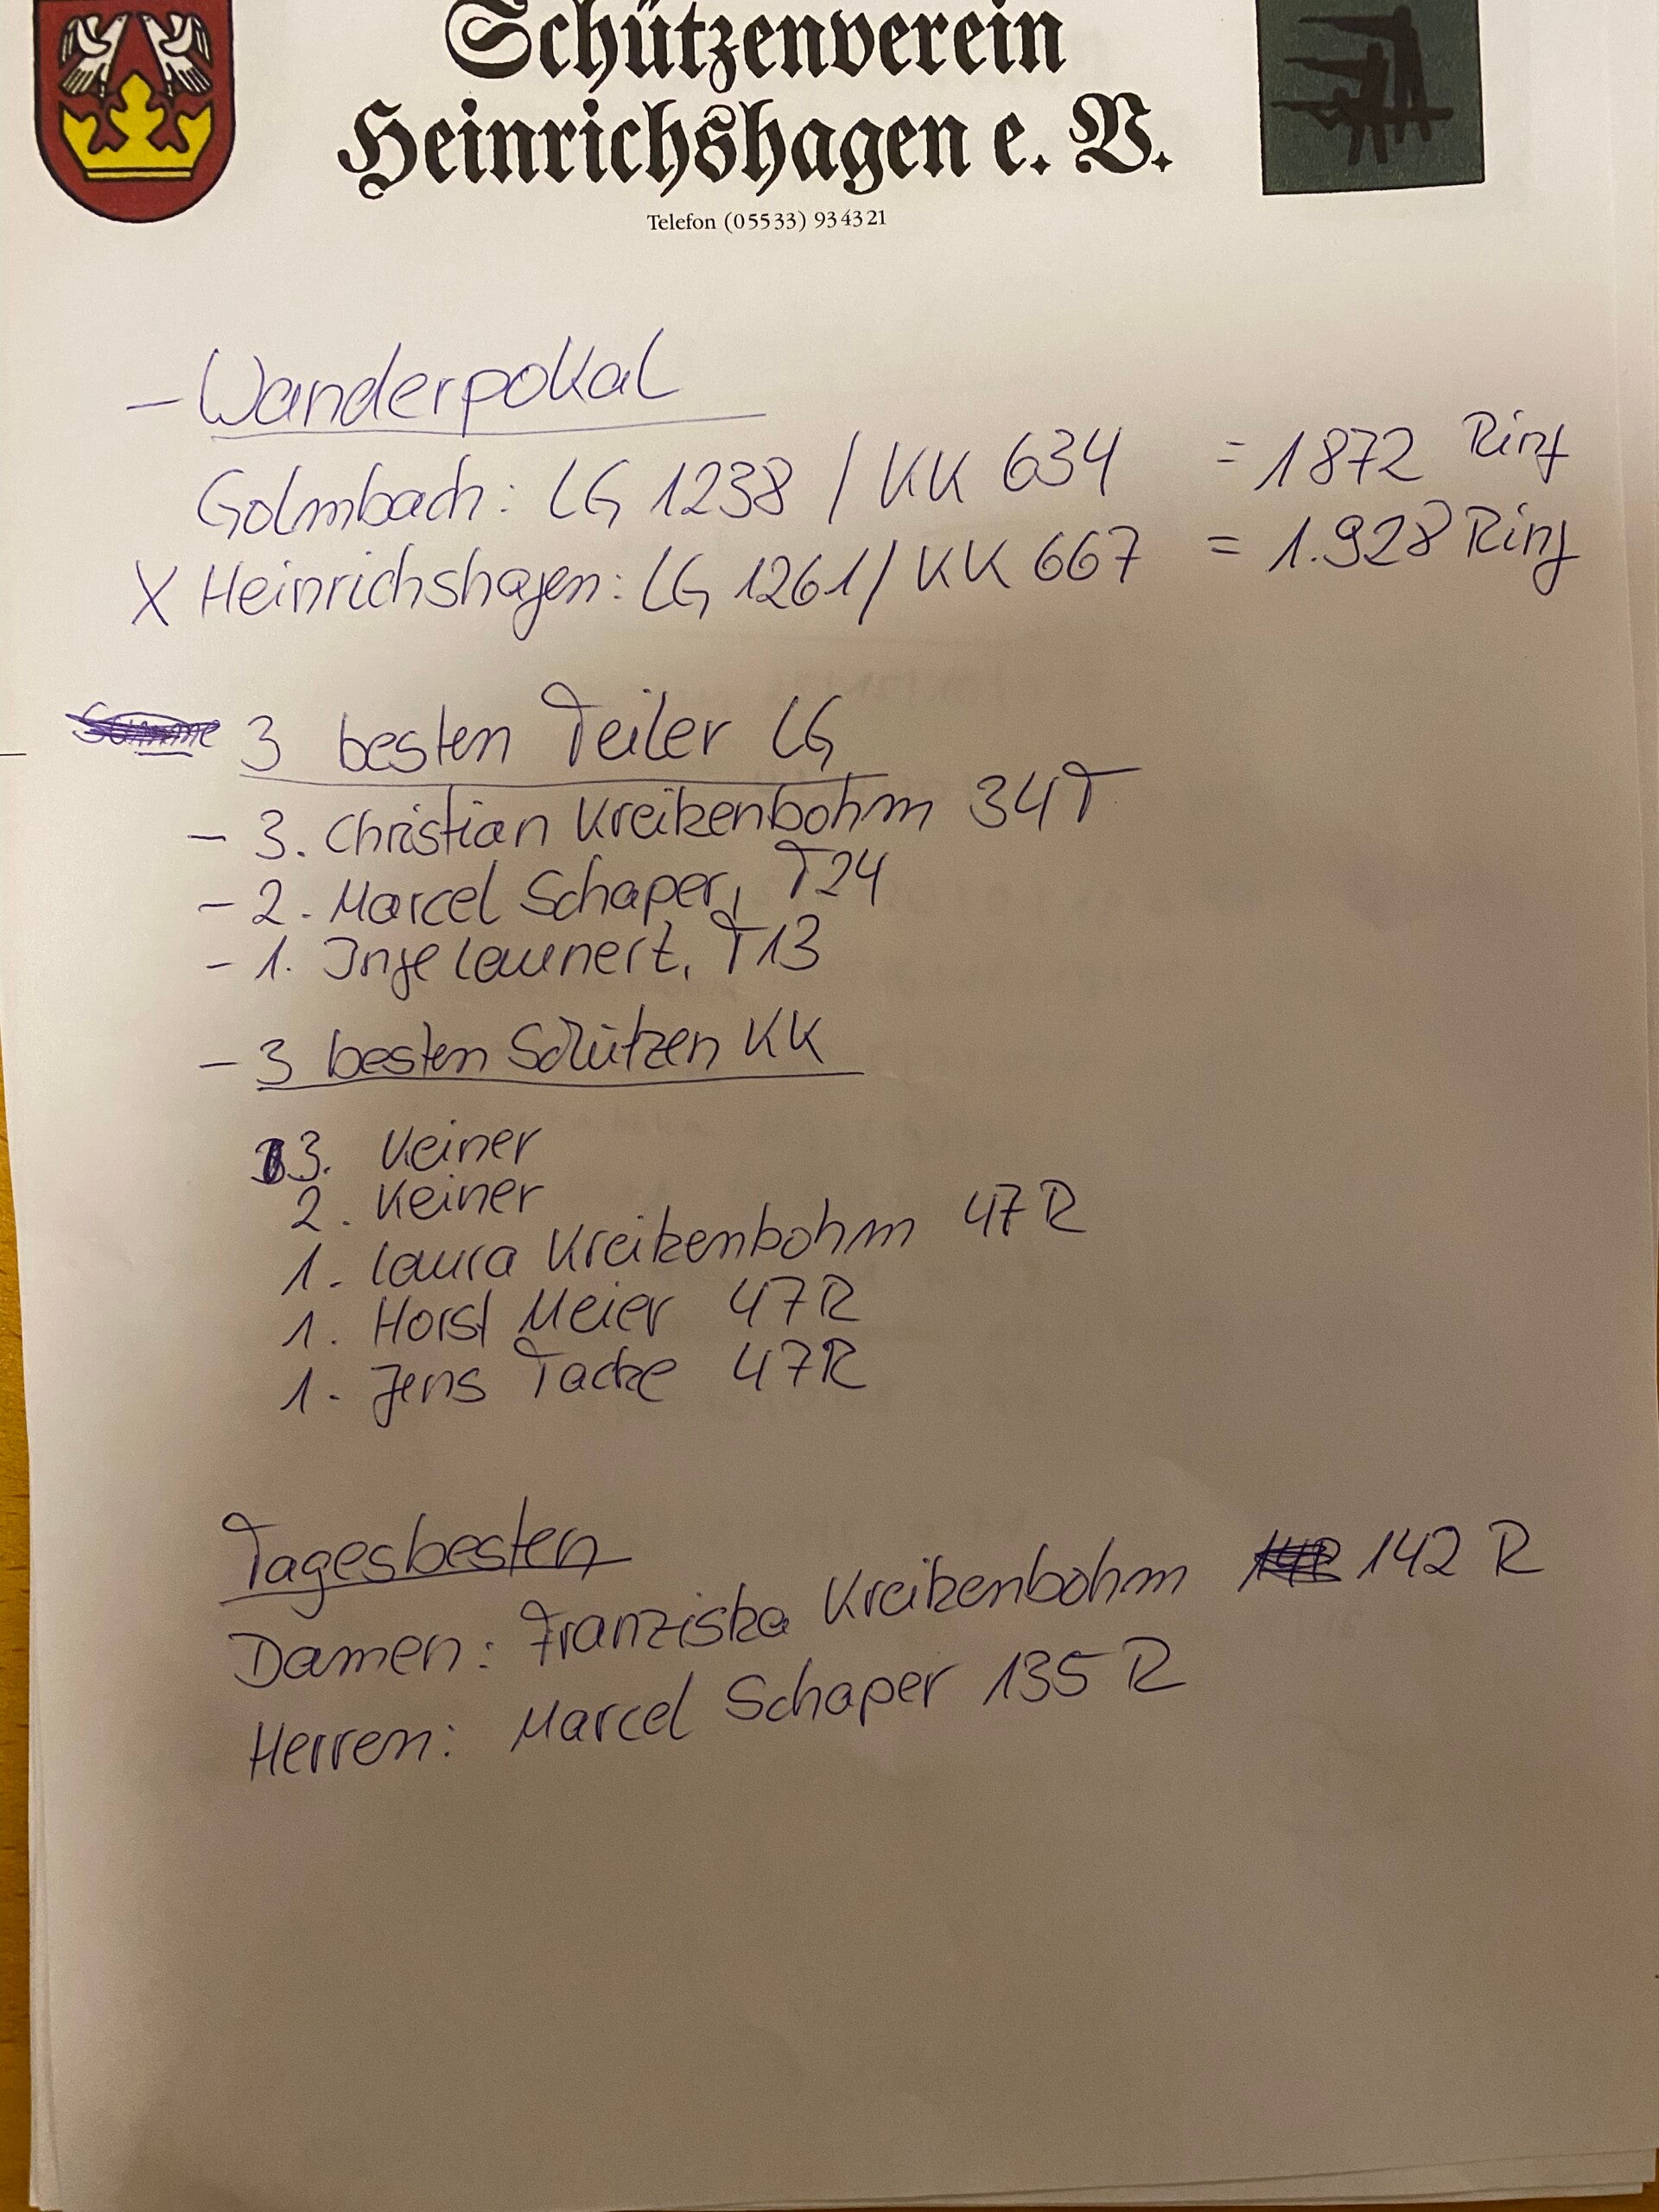 Schützenverein
Heinrichshagen e. V.
Telefon (05533) 934321
- Wanderpokal
Golmbach: LG 1238 / KK 634 = 1872 Ring
X Heinrichshagen: LG 1261 / KK 667 = 1.928 Ring
3 besten Teiler LG
- 3. Christian Kreikenbohm 34T
- 2. Marcel Schaper, T24
- 1. Inge Launert, T13
- 3 besten Schützen KK
3. Keiner
2. Keiner
1. Laura Kreikenbohm 47R
1. Horst Meier 47R
1. Jens Tacke 47R
Tagesbesten
Damen: Franziska Kreikenbohm 142 R
Herren: Marcel Schaper 135 R